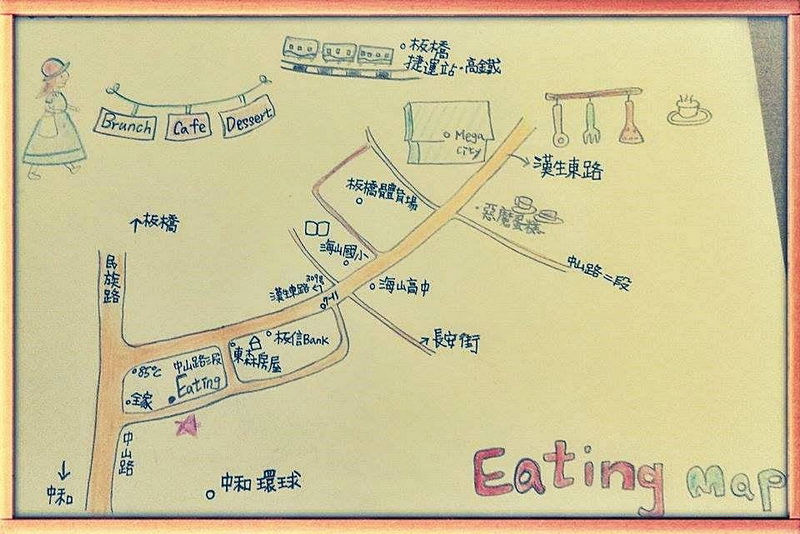 板橋
捷運站·高鐵
Brunch
Cafe
Dessert
Mega
City
漢生東路
板橋體育場
惡魔蛋糕
↑板橋
海山國小
中山路二段
民族路
漢生東路
7-11
海山高中
板信Bank
長安街
東森房屋
85℃
中山路三段
Eating
全家
中山路
中和
中和環球
Eating Map